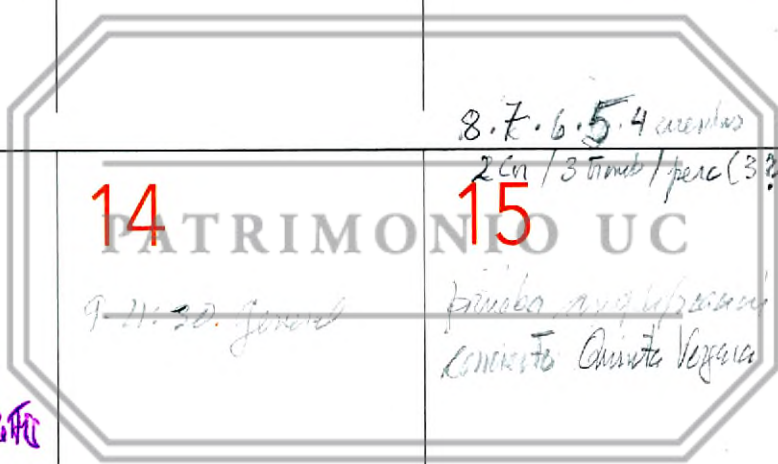 8.7.6.5.4 cuerdas
2 Cn / 3 Tromb / perc (3?
14
15
PATRIMONIO UC
9-11:30. general
prueba amplificación
concierto Quinta Vergara